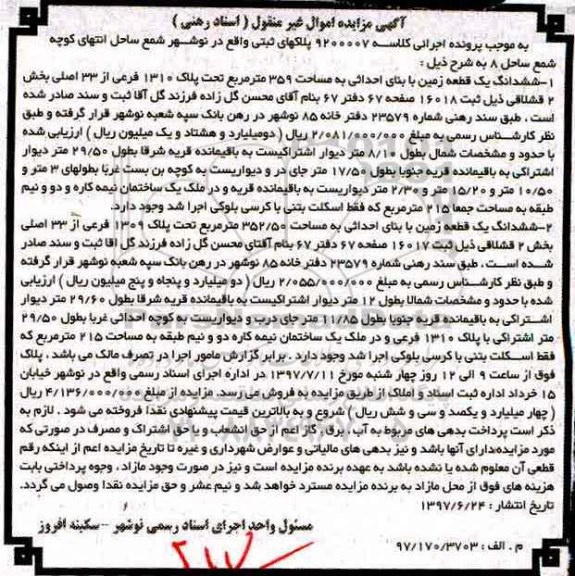 آگهی مزایده اموال غیر منقول ( اسناد رهنی )
به موجب پرونده اجرائی کلاسه ۹۲۰۰۰۰۷ پلاکهای ثبتی واقع در نوشهر شمع ساحل انتهای کوچه
شمع ساحل ۸ به شرح ذیل :
۱-ششدانگ یک قطعه زمین با بنای احداثی به مساحت ۳۵۹ مترمربع تحت پلاک ۱۳۱۰ فرعی از ۳۳ اصلی بخش
۲ قشلاقی ذیل ثبت ۱۶۰۱۸ صفحه ۶۷ دفتر ۶۷ بنام آقای محسن گل زاده فرزند گل آقا ثبت و سند صادر شده
است ، طبق سند رهنی شماره ۲۳۵۷۹ دفتر خانه ۸۵ نوشهر در رهن بانک سپه شعبه نوشهر قرار گرفته و طبق
نظر کارشناس رسمی به مبلغ ۲/۰۸۱/۰۰۰/۰۰۰ ریال ( دومیلیارد و هشتاد و یک میلیون ریال ) ارزیابی شده
با حدود و مشخصات شمال بطول ۸/۱۰ متر دیوار اشتراکیست به باقیمانده قریه شرقا بطول ۲۹/۵۰ متر دیوار
اشتراکی به باقیمانده قریه جنوبا بطول ۱۷/۵۰ متر جای در و دیواریست به کوچه بن بست غربا بطولهای ۳ متر و
۱۰/۵۰ متر و ۱۵/۲۰ متر و ۲/۳۰ متر دیواریست به باقیمانده قریه و در ملک یک ساختمان نیمه کاره و دو و نیم
طبقه به مساحت جمعا ۲۱۵ مترمربع که فقط اسکلت بتنی با کرسی بلوکی اجرا شد وجود دارد.
۲-ششدانگ یک قطعه زمین با بنای احداثی به مساحت ۳۵۲/۵۰ مترمربع تحت پلاک ۱۳۰۹ فرعی از ۳۳ اصلی
بخش ۲ قشلاقی ذیل ثبت ۱۶۰۱۷ صفحه ۶۷ دفتر ۶۷ بنام آقای محسن گل زاده فرزند گل اقا ثبت و سند صادر
شده است ، طبق سند رهنی شماره ۲۳۵۷۹ دفتر خانه ۸۵ نوشهر در رهن بانک سپه شعبه نوشهر قرار گرفته
و طبق نظر کارشناس رسمی به مبلغ ۲/۰۵۵/۰۰۰/۰۰۰ ریال ( دو میلیارد و پنجاه و پنج میلیون ریال ) ارزیابی
شده با حدود و مشخصات شمالا بطول ۱۲ متر دیوار اشتراکیست به باقیمانده قریه شرقا بطول ۲۹/۶۰ متر دیوار
اشتراکی به باقیمانده قریه جنوبا بطول ۱۱/۸۵ متر جای درب و دیواریست به کوچه احداثی غربا بطول ۲۹/۵۰
متر اشتراکی با پلاک ۱۳۱۰ فرعی و در ملک یک ساختمان نیمه کاره دو و نیم طبقه به مساحت ۲۱۵ مترمربع که
فقط اسکلت بتنی با کرسی بلوکی اجرا شد وجود دارد . برابر گزارش مامور اجرا در تصرف مالک می باشد . پلاک
فوق از ساعت ۹ الی ۱۲ روز چهار شنبه مورخ ۱۳۹۷/۷/۱۱ در اداره اجرای اسناد رسمی واقع در نوشهر خیابان
۱۵ خرداد اداره ثبت اسناد و املاک از طریق مزایده به فروش می رسد. مزایده از مبلغ ۴/۱۳۶/۰۰۰/۰۰۰ ریال
( چهار میلیارد و یکصد و سی و شش ریال ) شروع و به بالاترین قیمت پیشنهادی نقدا فروخته می شود . لازم به
ذکر است پرداخت بدهی های مربوط به آب ،برق , گاز اعم از حق انشعاب و یا حق اشتراک و مصرف در صورتی که
مورد مزایده دارای آنها باشد و نیز بدهی های مالیاتی و عوارض شهرداری و غیره تا تاریخ مزایده اعم از اینکه رقم
قطعی آن معلوم شده یا نشده باشد به عهده برنده مزایده است و نیز در صورت وجود مازاد ، وجوه پرداختی بابت
هزینه های فوق از محل مازاد به برنده مزایده مسترد خواهد شد و نیم عشر و حق مزایده نقدا وصول می گردد.
تاریخ انتشار : ۱۳۹۷/۶/۲۴
مسئول واحد اجرای اسناد رسمی نوشهر – سکینه افروز
م . الف : ۹۷/۱۷۰/۳۷۰۳